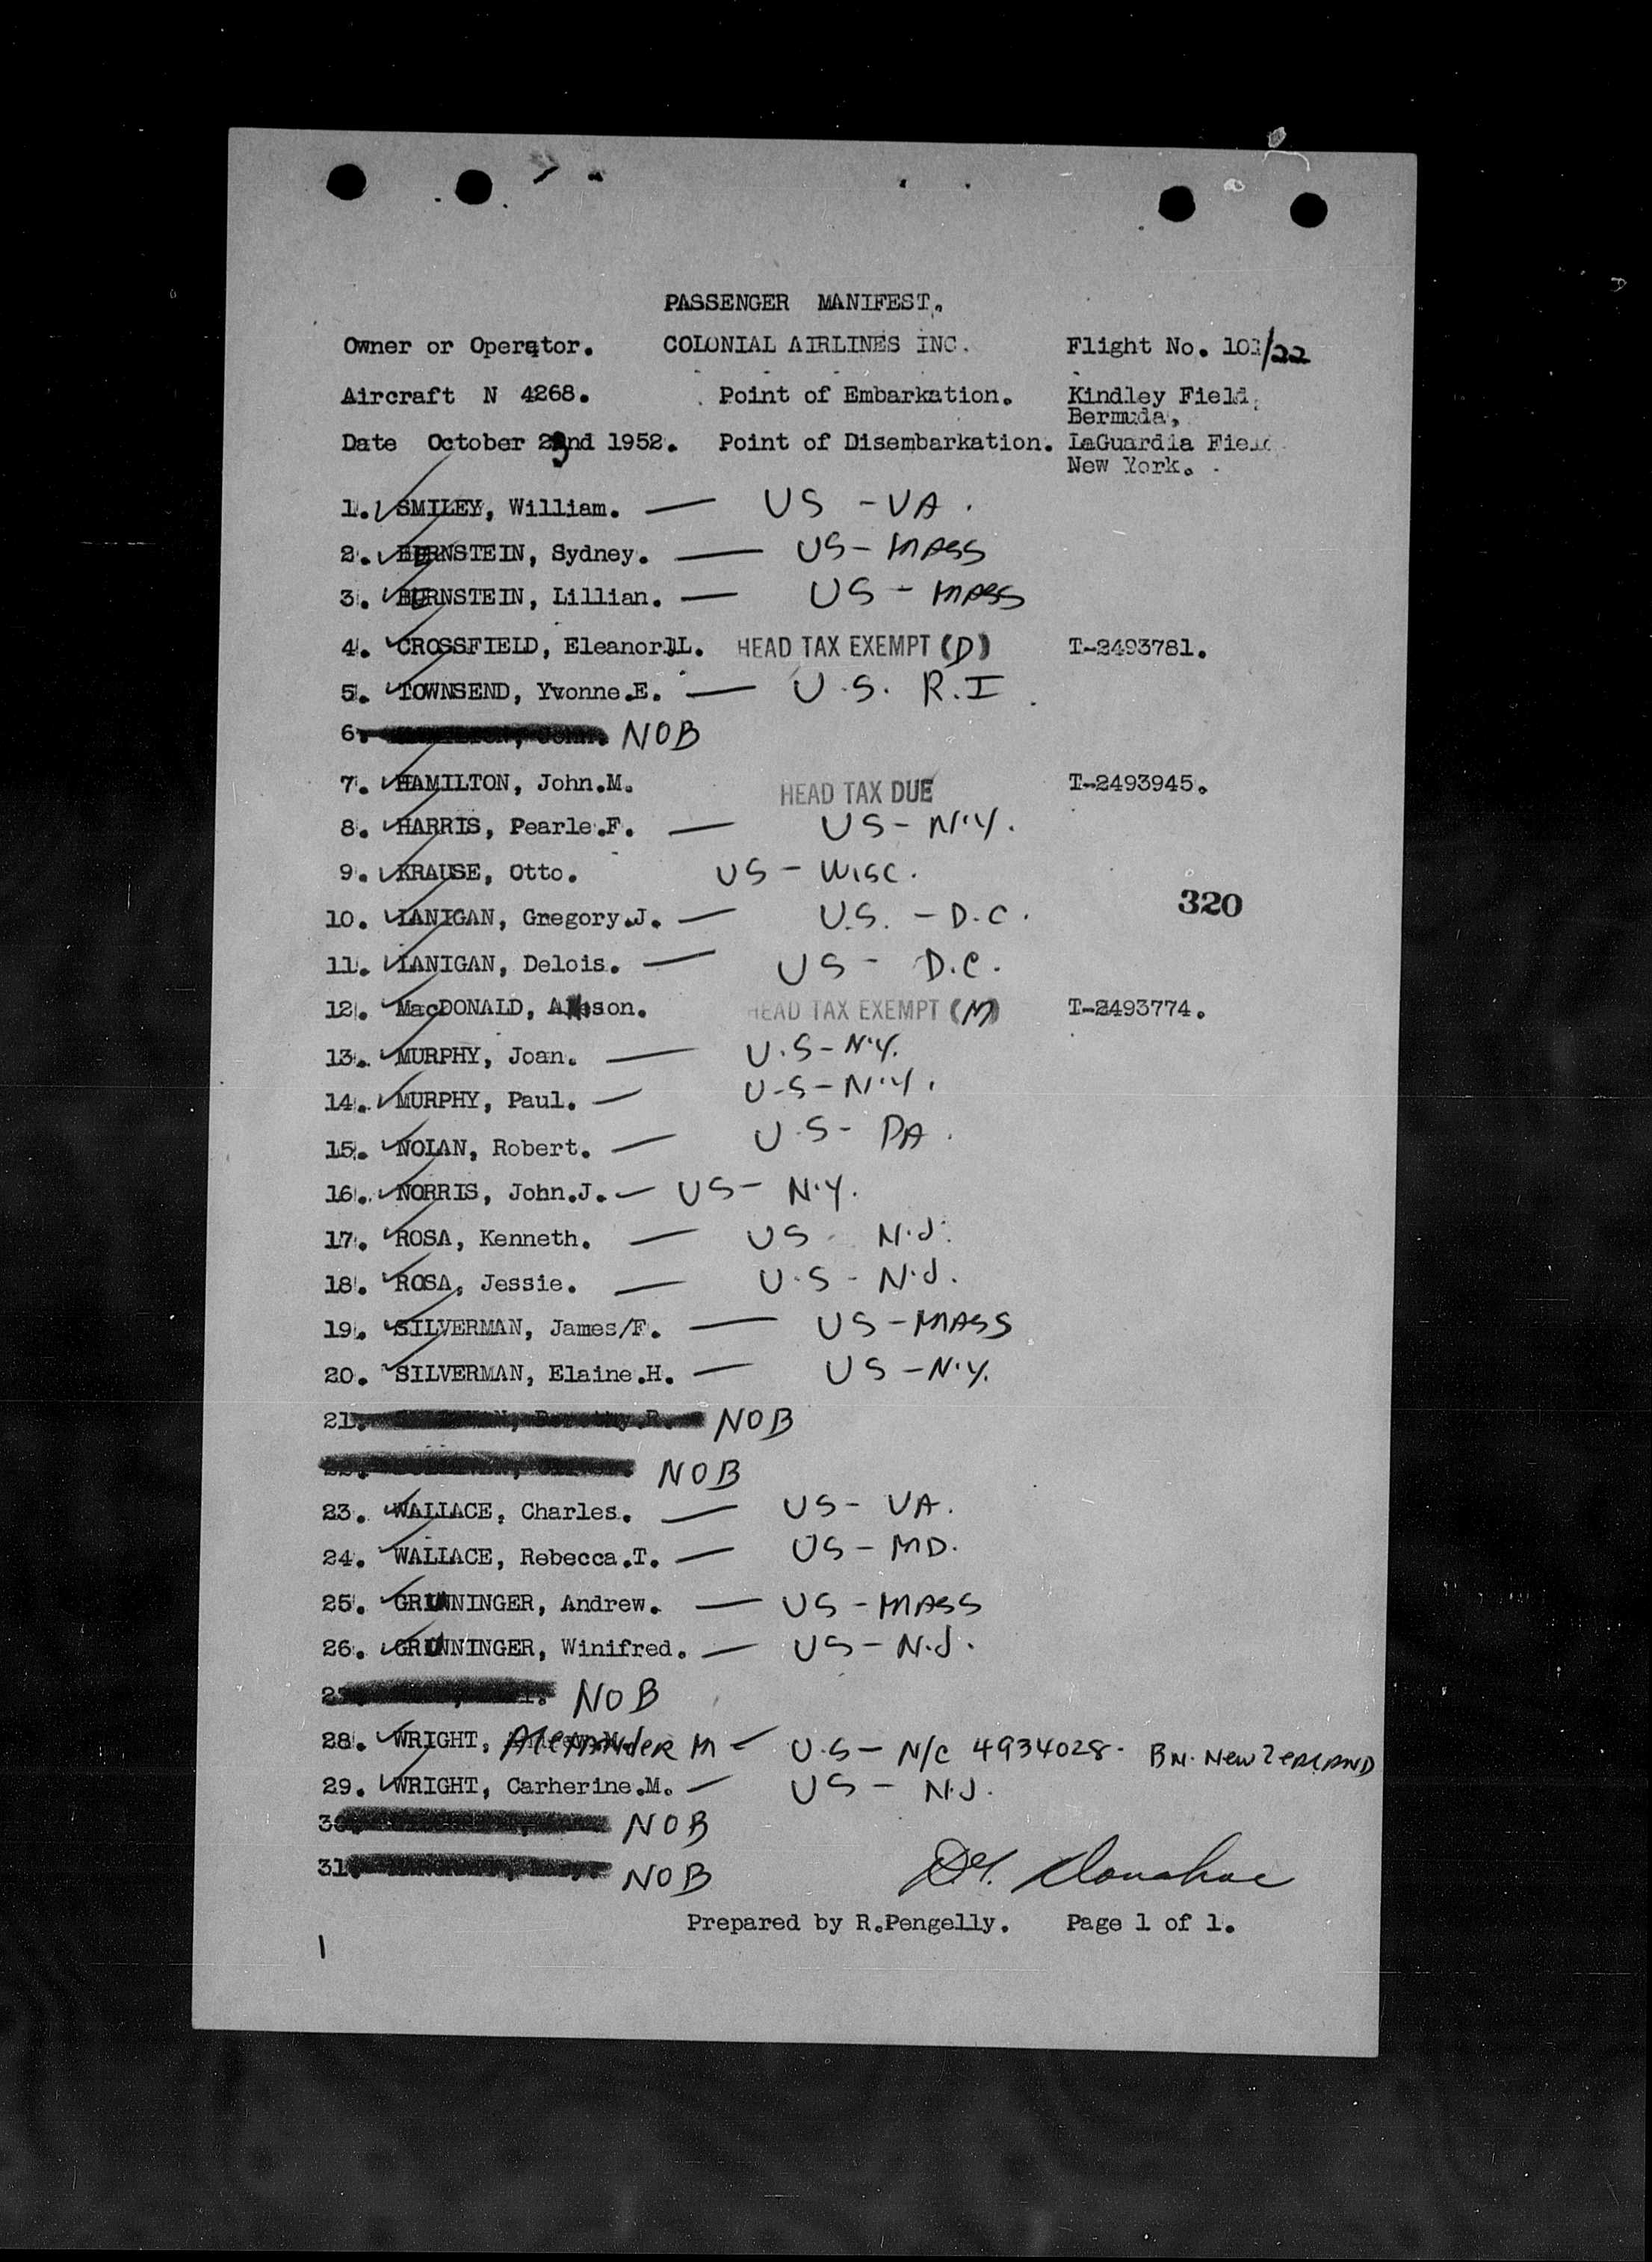 PASSENGER MANIFEST.
Owner or Operator. COLONIAL AIRLINES INC. Flight No. 102/22
Aircraft N 4268. Point of Embarkation. Kindley Field,
Bermuda,
Date October 23nd 1952. Point of Disembarkation. LaGuardia Field
New York.
1. SMILEY, William. — US - VA.
2. BERNSTEIN, Sydney. — US - MASS
3. BERNSTEIN, Lillian. — US - MASS
4. CROSSFIELD, Eleanor L. HEAD TAX EXEMPT (D) T-2493781.
5. TOWNSEND, Yvonne.E. — U.S. R.I
6. NOB
7. HAMILTON, John.M. HEAD TAX DUE T-2493945.
8. HARRIS, Pearle.F. — US - N.Y.
9. KRAUSE, Otto. US - WISC.
320
10. LANIGAN, Gregory.J. — U.S. - D.C.
11. LANIGAN, Delois. — US - D.C.
12. MacDONALD, HEAD TAX EXEMPT (M) T-2493774.
13. MURPHY, Joan. — U.S - N.Y.
14. MURPHY, Paul. — U-S - N.Y.
15. NOLAN, Robert. — U.S - PA.
16. NORRIS, John.J. — US - N.Y.
17. ROSA, Kenneth. — US N.J.
18. ROSA, Jessie. — U.S - N.J.
19. SILVERMAN, James/F. — US - MASS
20. SILVERMAN, Elaine.H. — US - N.Y.
21. NOB
NOB
23. WALLACE, Charles. — US - VA.
24. WALLACE, Rebecca.T. — US - MD.
25. GRUNNINGER, Andrew. — US - MASS
26. GRUNNINGER, Winifred. — US - N.J.
27 NOB
28. WRIGHT, Alexander M - U.S - N/C 4934028 - BN. New Zealand
29. WRIGHT, Carherine.M. — US - N.J.
30 NOB
31. NOB
Donahue
Prepared by R.Pengelly. Page 1 of 1.
1